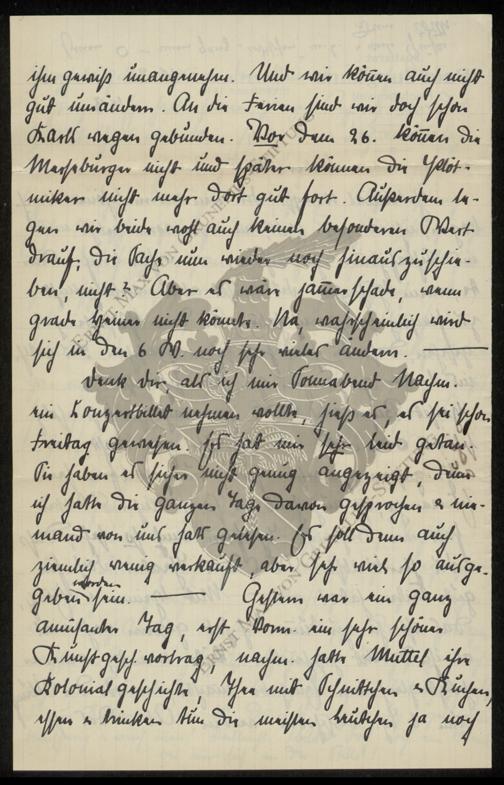 ihm gewiß unangenehm. Und wir können auch nicht
gut umändern. An die Ferien sind wir doch schon
Karls wegen gebunden. Vor dem 26. können die
Merseburger nicht und später können die
nicht mehr dort gut fort. Außerdem le-
gen wir beide wohl auch keinen besonderen Wert
drauf, die Sache nun wieder noch hinauszuschie-
ben, nicht? Aber es wäre jammerschade, wenn
grade nicht könnte. Na, wahrscheinlich wird
sich in den 6 W. noch sehr vieles ändern. ———
Denk dir, als ich mir Sonnabend Nachm.
ein Konzertbillet nehmen wollte, hieß es, es sei schon
Freitag gewesen. Es hat mir sehr leid getan.
Sie haben es sicher nicht genug angezeigt, denn
ich hatte die ganzen Tage davon gesprochen u. nie-
mand von uns hats gelesen. Es soll denn auch
ziemlich wenig verkauft, aber sehr viel so ausge-
geben worden sein. ——— Gestern war ein ganz
amüsanter Tag, erst Vorm. ein sehr schöner
Kunstgesch. vortrag, nachm. hatte Muttel ihre
Kolonialgeschichte, Thee mit Schnittchen u. Kuchen,
essen u. trinken tun die meisten Leutchen ja noch
ERNST MAX VON GRUNELIUS-STIFTUNG